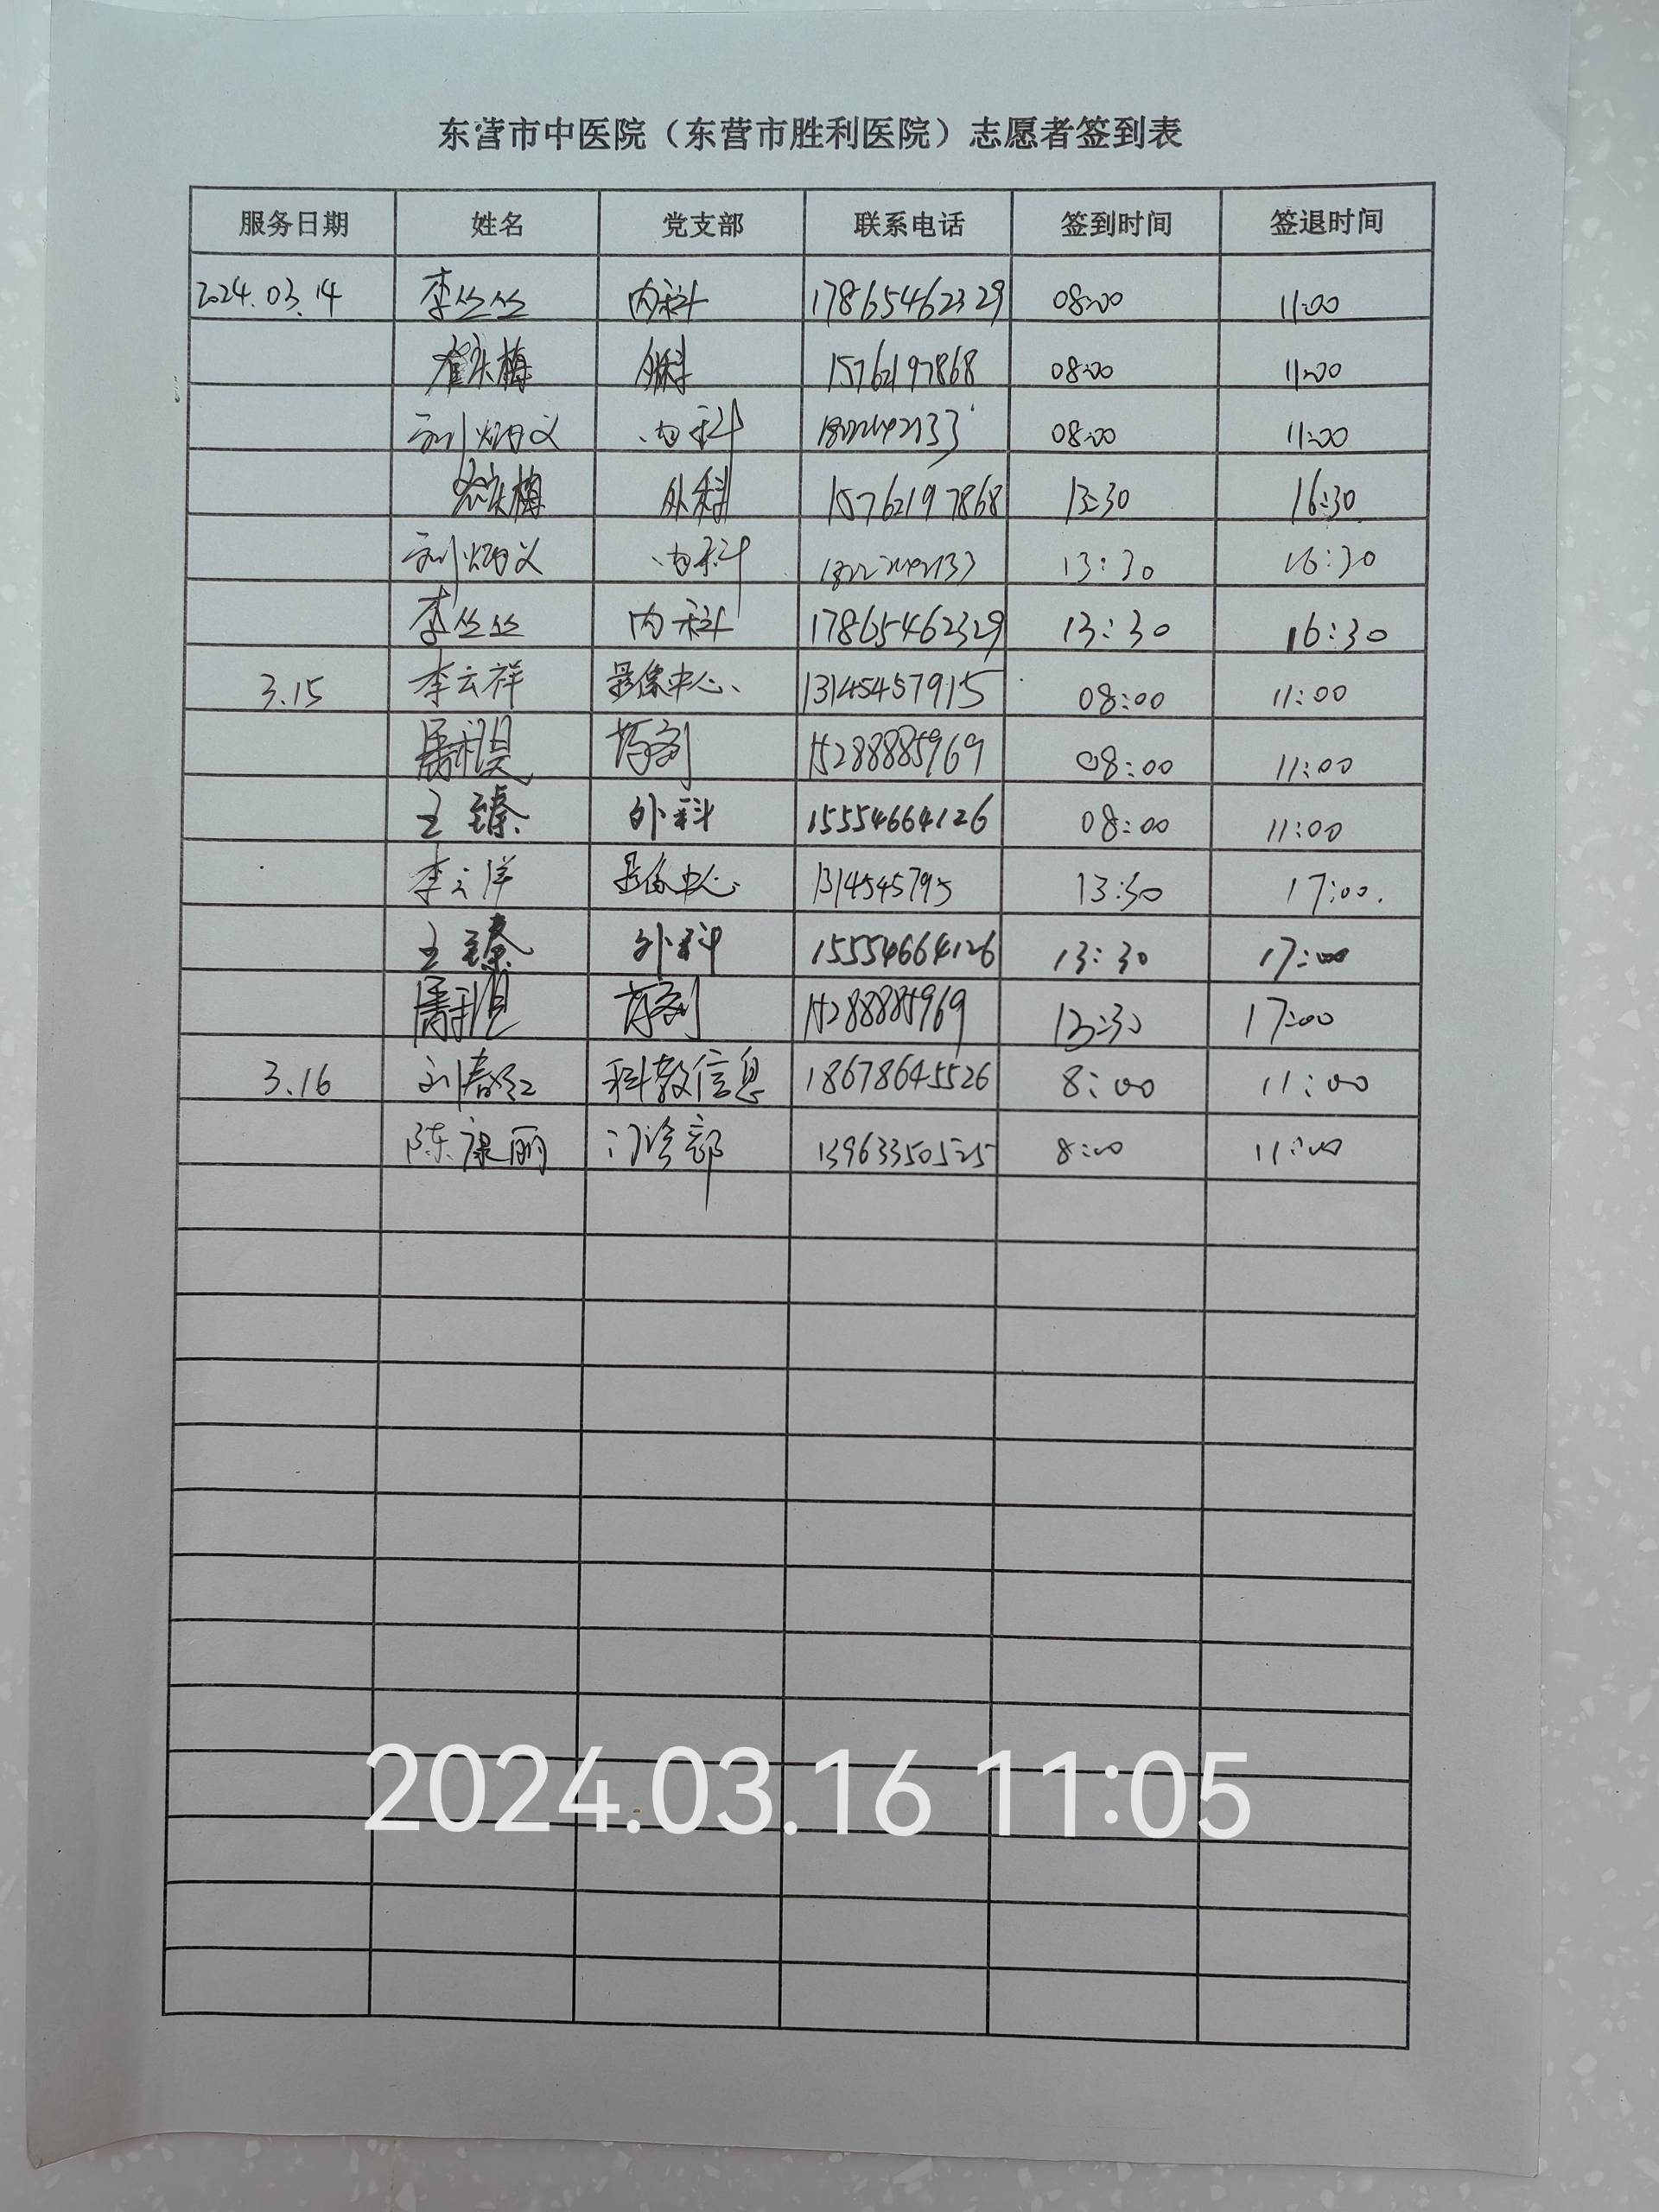 东营市中医院（东营市胜利医院）志愿者签到表
服务日期 姓名 党支部 联系电话 签到时间 签退时间
2024.03.14 李丝丝 内科 17865462329 08:00 11:00
外科 15762197868 08:00 11:00
刘炳义 内科 08:00 11:00
外科 15762197868 13:30 16:30
刘炳义 内科 13:30 16:30
李丝丝 内科 17865462329 13:30 16:30
3.15 李云祥 影像中心 13145457915 08:00 11:00
药剂 15288885969 08:00 11:00
王臻 外科 15554664126 08:00 11:00
李云祥 影像中心 13:30 17:00.
王臻 外科 15554664126 13:30 17:00
药剂 15288885969 13:30 17:00
3.16 刘春红 科教信息 18678645526 8:00 11:00
陈康丽 门诊部 13963350525 8:00 11:00
2024.03.16 11:05